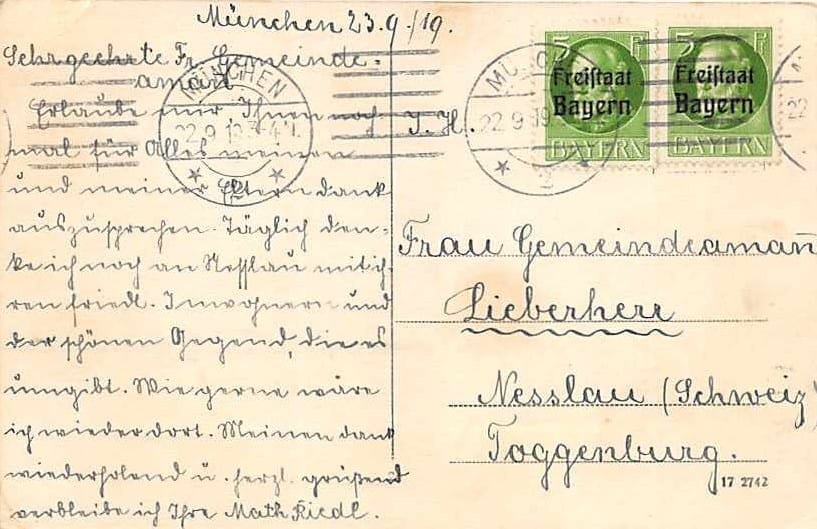 München 23.9./19.
Sehrgeehrte Fr. Gemeinde-
amañ
Erlaube mir Ihnen noch
mal für Alles meinen
und meiner Eltern dank
auszusprechen. Täglich den-
ke ich noch an Nesslau mit ich-
ren friedl. Inwohnern und
der schönen Gegend, die es
umgibt. Wie gerne wäre
ich wieder dort. Meinen dank
wiederholend u. herzl. grüßend
verbleibe ich Ihre Math. Riedl.
MÜNCHEN
22.9.19
2
MÜNCHEN
22.9.19
2
5 Pf
Freistaat
Bayern
BAYERN
5 Pf
Freistaat
Bayern
BAYERN
22
I. H.
Frau Gemeindeamañ
Lieberherr
Nesslau (Schweiz)
Toggenburg.
17 2742